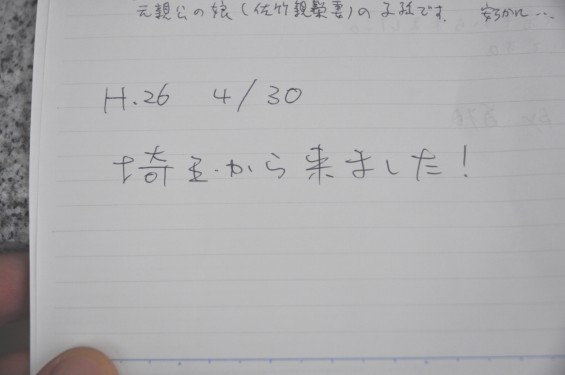 元親公の娘(佐竹親栄妻)の子孫です。 安らかに…
H.26 4/30
埼玉から来ました!